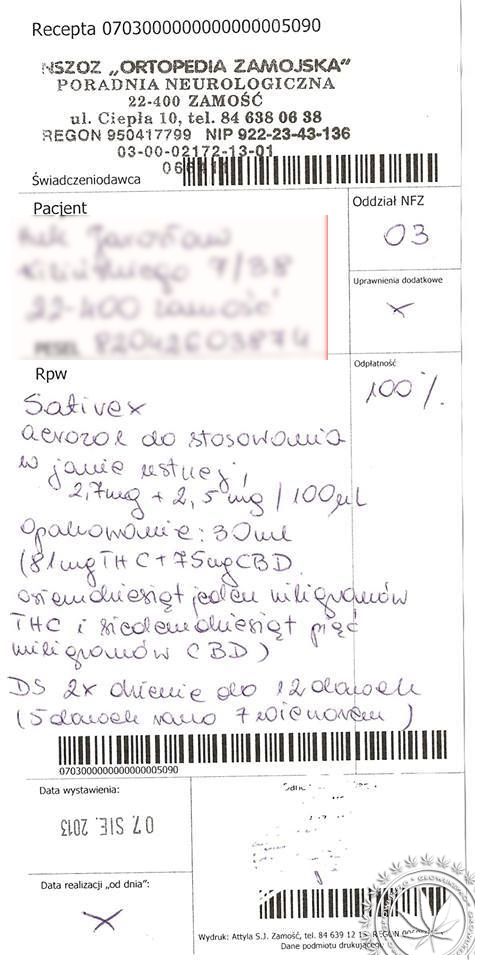 Recepta 0703000000000000005090
NSZOZ „ORTOPEDIA ZAMOJSKA”
PORADNIA NEUROLOGICZNA
22-400 ZAMOŚĆ
ul. Ciepła 10, tel. 84 638 06 38
REGON 950417799 NIP 922-23-43-136
03-00-02172-13-01
Świadczeniodawca
Pacjent
Oddział NFZ
03
Uprawnienia dodatkowe
X
Odpłatność
100%
Rpw
Sativex
aerozol do stosowania
w jamie ustnej,
2,7mg + 2,5mg / 100µL
Opakowanie: 30ml
(81mg THC + 75mg CBD
osiemdziesiąt jeden miligramów
THC i siedemdziesiąt pięć
miligramów CBD)
DS 2x dziennie do 12 dawek
(5 dawek rano 7 wieczorem)
0703000000000000005090
Data wystawienia:
07. SIE. 2013
Data realizacji „od dnia”:
X
Wydruk: Attyla S.J. Zamość, tel. 84 639 12 REGON
Dane podmiotu drukującego